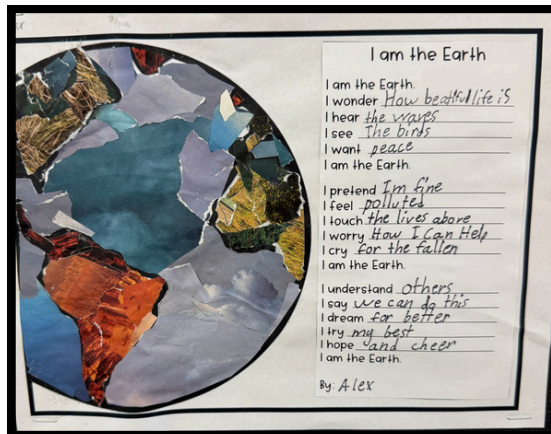 I am the Earth
I am the Earth.
I wonder How beatiful life is
I hear the waves
I see The birds
I want peace
I am the Earth.
I pretend Im fine
I feel polluted
I touch the lives above
I worry How I Can Help
I cry for the fallen
I am the Earth.
I understand others
I say we can do this
I dream for better
I try my best
I hope and cheer
I am the Earth.
By: Alex